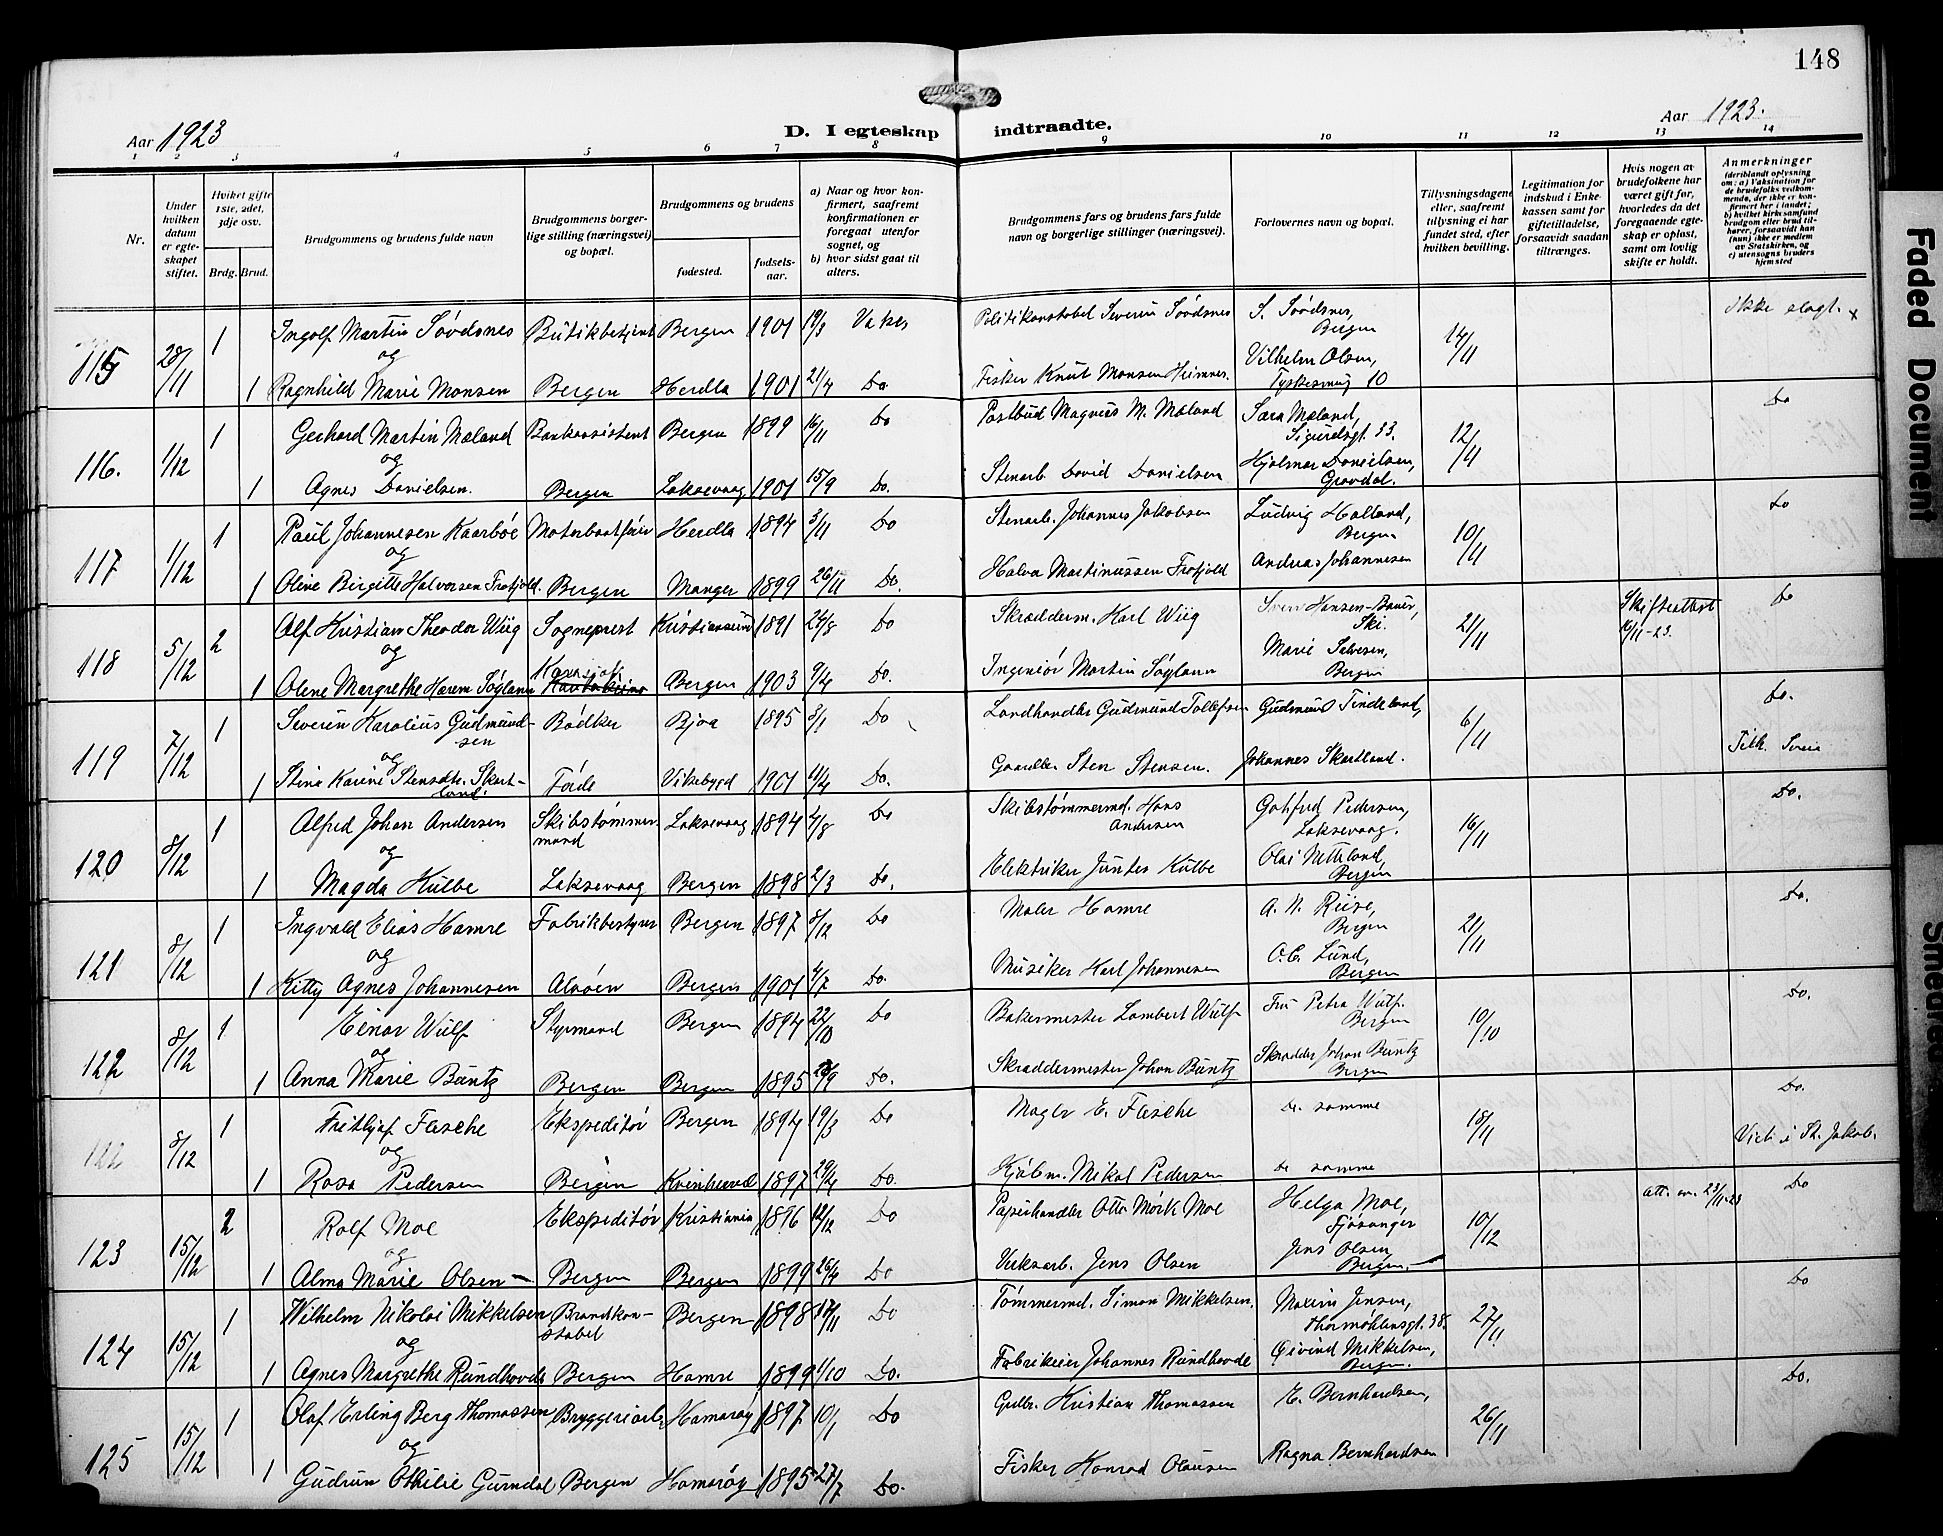 148
Aar 1923
D. I egteskap indtraadte.
Aar 1923.
1 2 3 4 5 6 7 8 9 10 11 12 13 14
Nr.
Under hvilken datum er egteskapet stiftet.
Hvilket gifte 1ste, 2det, 3dje osv.
Brdg. Brud.
Brudgommens og brudens fulde navn
Brudgommens borgerlige stilling (næringsvei) og bopæl.
Brudgommens og brudens
fødested.
fødselsaar.
a) Naar og hvor konfirmert, saafremt konfirmationen er foregaat utenfor sognet, og
b) hvor sidst gaat til alters.
Brudgommens fars og brudens fars fulde navn og borgerlige stillinger (næringsvei).
Forlovernes navn og bopæl.
Tillysningsdagene eller, saafremt tillysning ei har fundet sted, efter hvilken bevilling.
Legitimation for indskud i Enkekassen samt for giftetilladelse, forsaavidt saadan tiltrænges.
Hvis nogen av brudefolkene har været gift før, hvorledes da det foregaaende egteskap er opløst, samt om lovlig skifte er holdt.
Anmerkninger
(deriblandt oplysning om: a) Vaksination for de brudefolks vedkommende, der ikke er konfirmert her i landet; b) hvilket kirkesamfund brudgom eller brud tilhører, forsaavidt han (hun) ikke er medlem av Statskirken, og c) utensogns bruders hjemsted
115 28/11 1 Ingolf Martin Søvdsnes Butikbetjent Bergen 1901 19/3 Politikonstabel Severin Søvdsnes S. Søvdsnes, Bergen 14/11 Ikke slegt.
og Vilhelm Olsen,
1 Ragnhild Marie Monsen Bergen Herdla 1901 21/4 Do. Fisker Knut Monsen 10
116. 1/12 1 Gerhard Martin Mæland Bankassistent Bergen 1899 16/11 Do Postbud Magnus M. Mæland Sara Mæland, Sigurdsgt. 33. 12/11 Do
og
1 Agnes Danielsen. Bergen Laksevaag 1901 15/9 Do. Stenarb. David Danielsen Hjalmar Danielsen, Gravdal.
117 1/12 1 Paul Johannesen Kaarbøe Herdla 1894 3/11 Do Stenarb. Johannes Jakobsen Ludvig Halland, Bergen 10/11 Do
og
1 Oline Birgitte Halvorsen Trofjeld. Bergen Manger 1899 26/11 Do. Halvor Martinussen Trofjeld Andreas Johannesen
118 5/12 2 Alf Kristian Theodor Wiig Sogneprest Kristiansund 1891 24/8 Do Skræddern. Karl Wiig Sverr Hansen-Bauer, Ski. 21/11 Skifteattest 16/11-23. Do
og Karasjok
1 Olene Margrethe Harem Søgland Kautokeino Bergen 1903 9/4 Do. Ingeniør Martin Søgland Marie Salvesen, Bergen
119 7/12 1 Severin Karolius Gudmundsen Bødker Bjoa 1895 3/1 Do Landhandler Gudmund Tollefsen Gudmund Tindeland, 6/11 Do.
og Tilh. Sveio
1 Stina Karine Stensdtr. Skartland. Førde Vikebygd 1901 11/4 Do. Gaardbr. Sten Stensen. Johannes Skartland.
120 8/12 1 Alfred Johan Andersen Skibstømmermand Laksevaag 1894 4/8 Do Skibstømmermd. Hans Andersen Gotfred Pedersen, Laksevaag. 16/11 Do.
og
1 Magda Kulbe Laksevaag Bergen 1898 2/3 Do. Elektriker Juntes Kulbe Olai Nettland, Bergen
121 8/12 1 Ingvald Elias Hamre Fabrikbestyrer Bergen 1897 8/12 Do Maler Hamre A. N. Riise, Bergen 21/11 Do.
og
1 Kitty Agnes Johannesen Alvøen Bergen 1901 4/7 Do. Musiker Karl Johannesen O.C. Lund, Bergen
122 8/12 1 Einar Wulf Styrmand Bergen 1894 22/10 Do Bakermester Lambert Wulf Fru Petra Wulf. Bergen 10/10 Do.
og
1 Anna Marie Büntz Bergen Bergen 1895 Do. Skræddermester Johan Büntz Skrædder Johan Büntz Bergen
122 8/12 1 Fridtjof Fasche Ekspeditør Bergen 1894 19/3 Do Mægler E. Fasche De samme 18/11 Do.
og Viet i St. Jakob.
1 Rosa Pedersen Bergen Kvinherred 1897 29/4 Do. Kjøbm. Mikal Pedersen De samme
123 15/12 2 Rolf Moe Ekspeditør Kristiania 1896 12/12 Do Papirhandler Otto Mørk Moe Helga Moe, Fjøsanger 10/12 att. av 23/11-23 Do
og
1 Alma Marie Olsen Bergen Bergen 1899 26/4 Do Verksarb. Jens Olsen Jens Olsen Bergen.
124 15/12 1 Wilhelm Nikolai Mikkelsen Brandkonstabel Bergen 1898 17/11 Do Tømmermd. Simon Mikkelsen. Maxim Jensen, Thormøhlensgt. 38. 27/11 Do
og
1 Agnes Margrethe Rundhovde Bergen Hamre 1899 1/10 Do. Fabrikeier Johannes Rundhovde Øivind Mikkelsen, Bergen.
125 15/12 1 Olaf Erling Berg Thomassen Bryggeriarb. Hamarøy 1897 10/1 Do Gulbr. Kristian Thomassen E. Bernhardsen, 26/11 Do.
og
1 Gudrun Othilie Gurndal Bergen Hamarøy 1895 27/7 Do. Fisker Konrad Olausen Ragna Bernhardsen
Faded Document